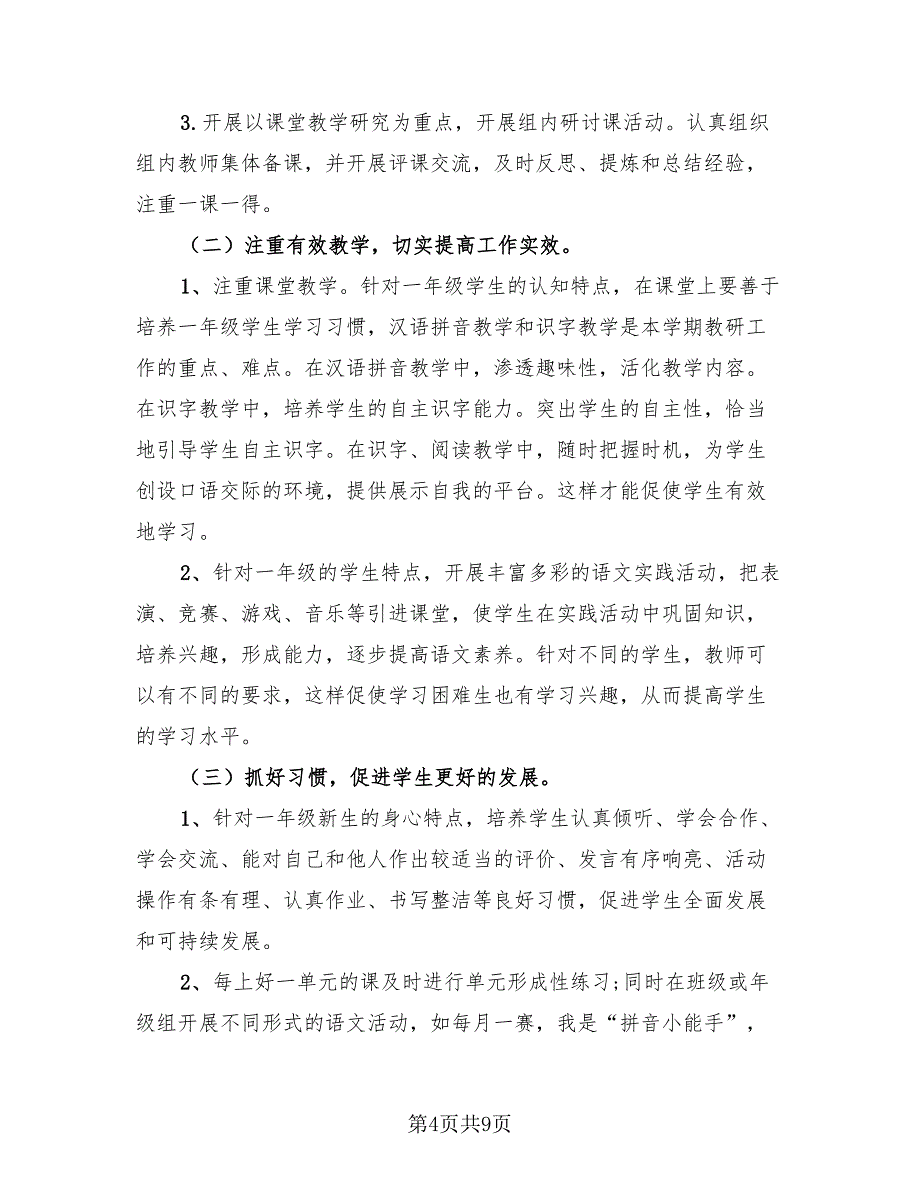 3.开展以课堂教学研究为重点，开展组内研讨课活动。认真组织
组内教师集体备课，并开展评课交流，及时反思、提炼和总结经验，
注重一课一得。
（二）注重有效教学，切实提高工作实效。
1、注重课堂教学。针对一年级学生的认知特点，在课堂上要善于
培养一年级学生学习习惯，汉语拼音教学和识字教学是本学期教研工
作的重点、难点。在汉语拼音教学中，渗透趣味性，活化教学内容。
在识字教学中，培养学生的自主识字能力。突出学生的自主性，恰当
地引导学生自主识字。在识字、阅读教学中，随时把握时机，为学生
创设口语交际的环境，提供展示自我的平台。这样才能促使学生有效
地学习。
2、针对一年级的学生特点，开展丰富多彩的语文实践活动，把表
演、竞赛、游戏、音乐等引进课堂，使学生在实践活动中巩固知识，
培养兴趣，形成能力，逐步提高语文素养。针对不同的学生，教师可
以有不同的要求，这样促使学习困难生也有学习兴趣，从而提高学生
的学习水平。
（三）抓好习惯，促进学生更好的发展。
1、针对一年级新生的身心特点，培养学生认真倾听、学会合作、
学会交流、能对自己和他人作出较适当的评价、发言有序响亮、活动
操作有条有理、认真作业、书写整洁等良好习惯，促进学生全面发展
和可持续发展。
2、每上好一单元的课及时进行单元形成性练习;同时在班级或年
级组开展不同形式的语文活动，如每月一赛，我是“拼音小能手”，
第4页共9页